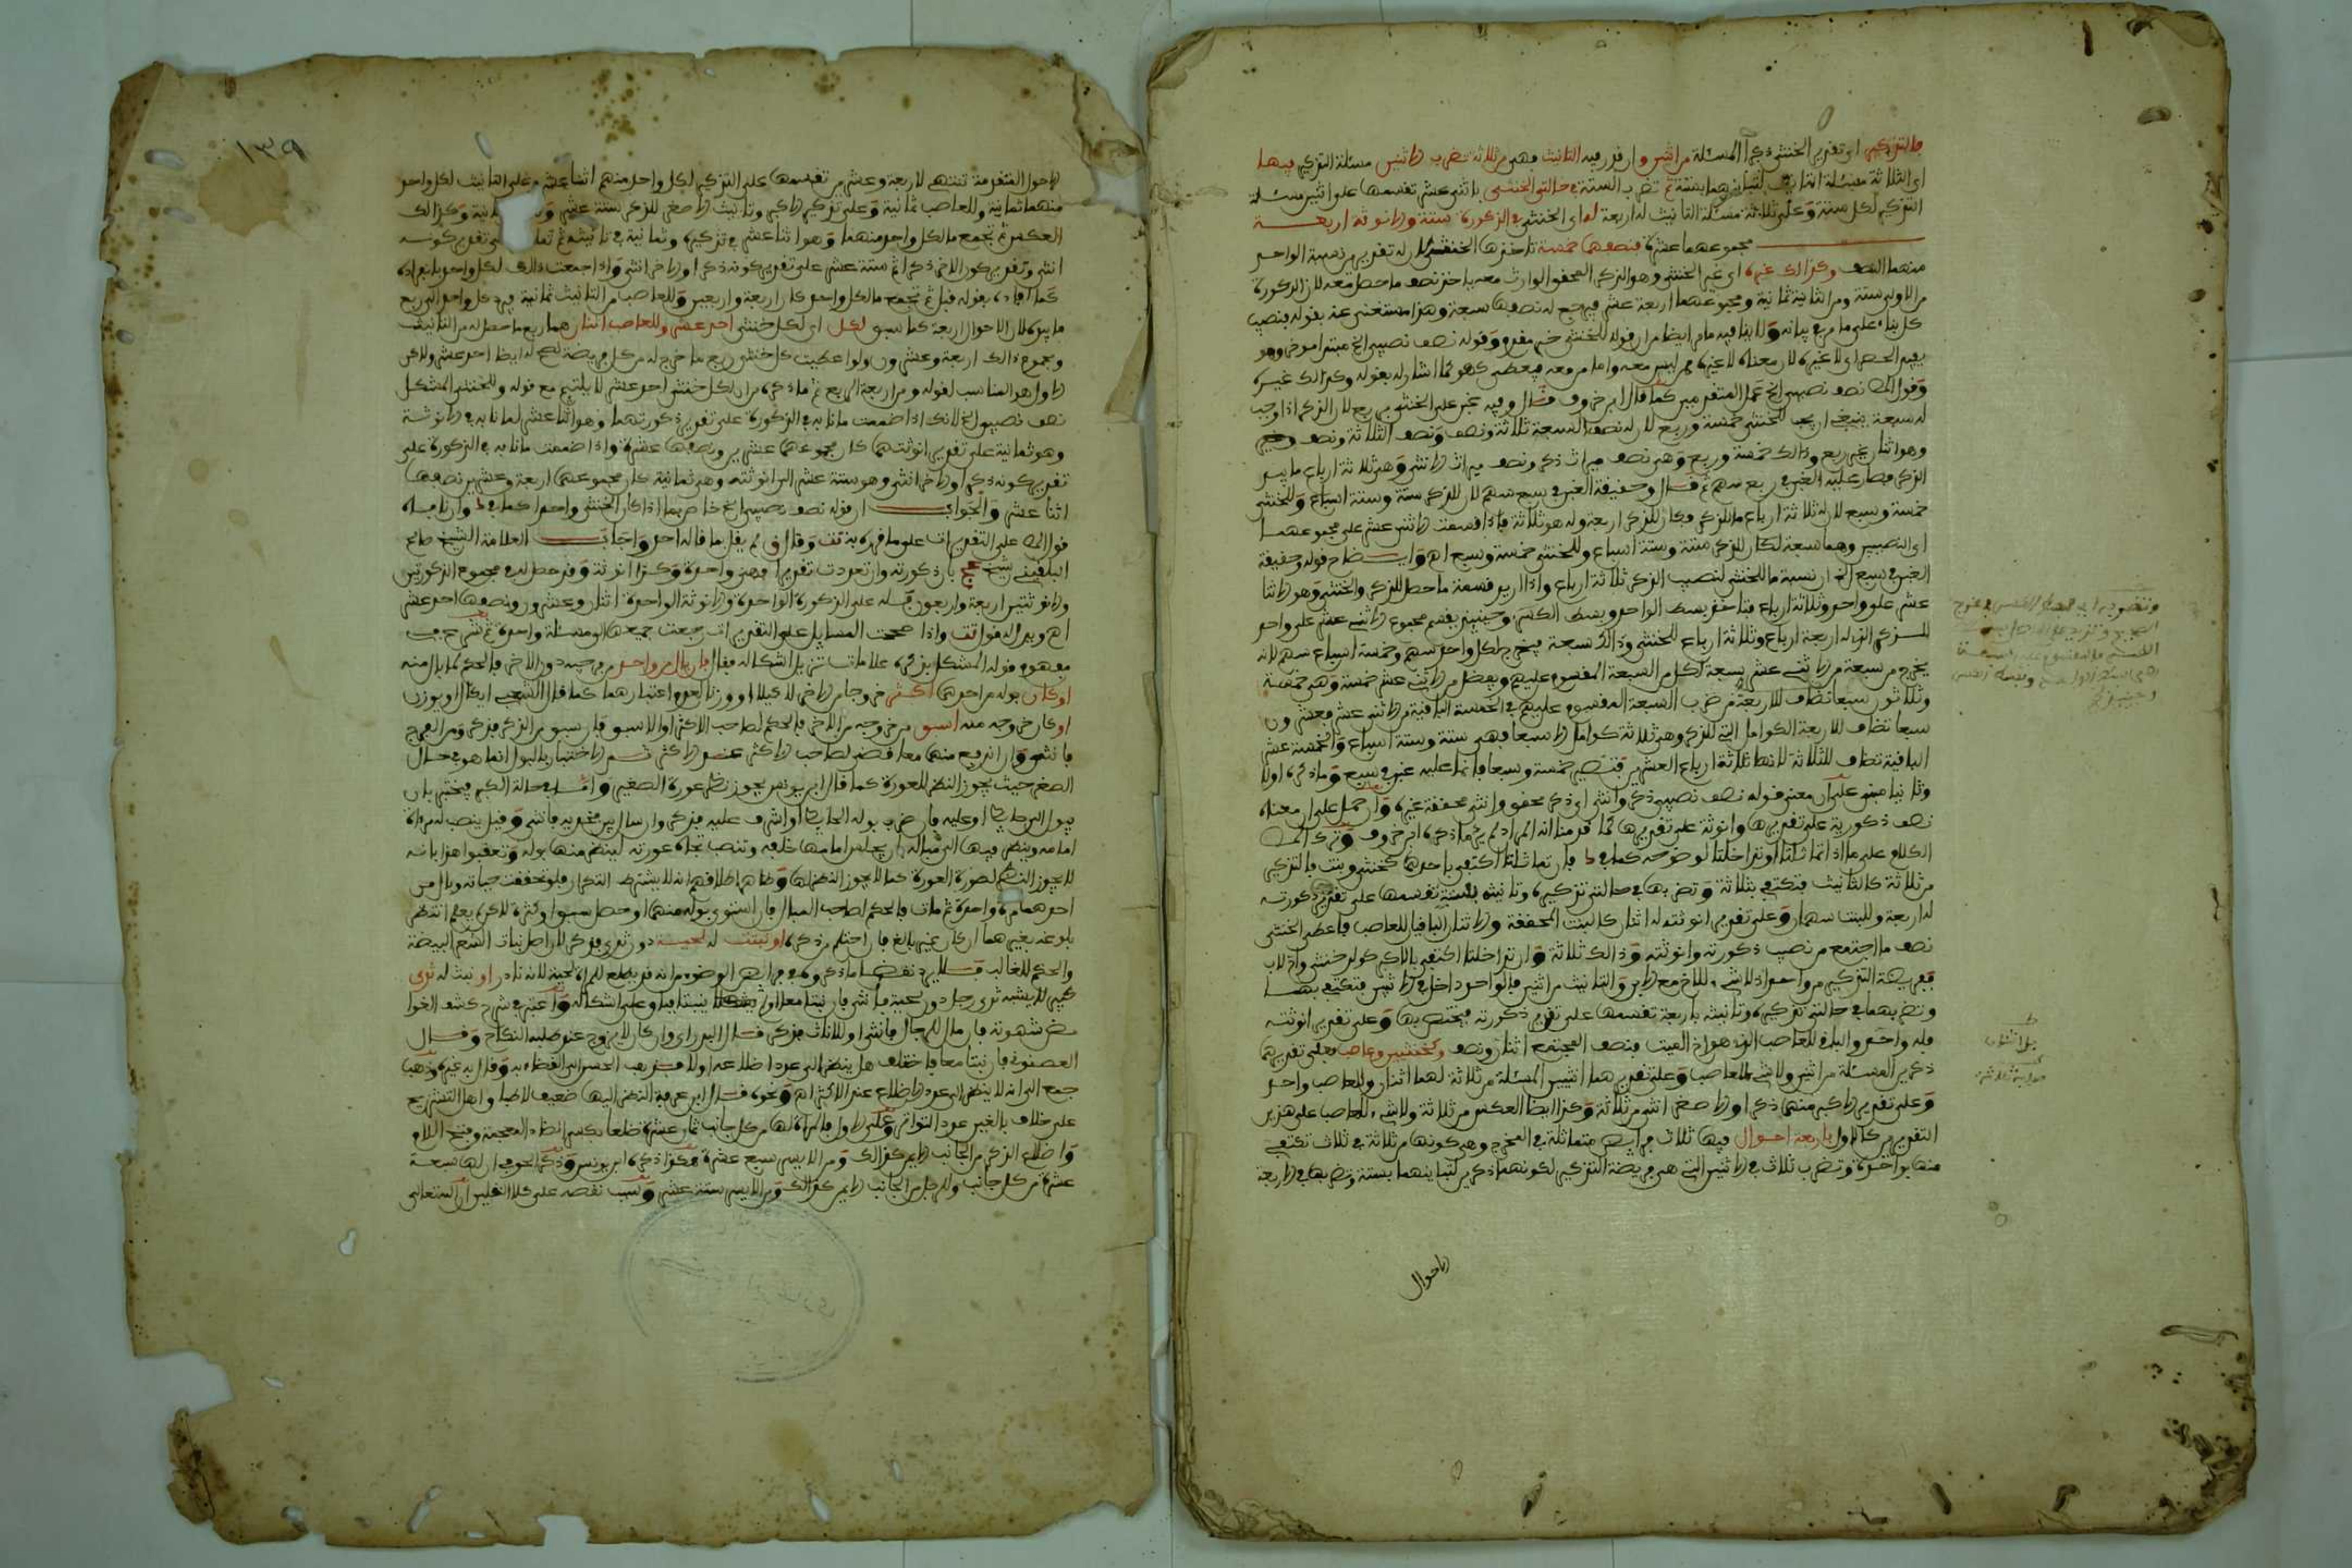 فالتذكير اي تقدير الخنثى ذكرا المسئلة من اثنين وان قدر فيه التانيث فهي من ثلاثة تضرب الاثنين مسئلة التذكير فيها
اي الثلاثة مسئلة التانيث لتباينهما بستة ثم تضرب الستة في حالتي الخنثى باثني عشر تقسمها على اثنين مسئلة
التذكير لكل ستة وعلى ثلاثة مسئلة التانيث له اربعة له اي الخنثى في الذكورة ستة والانوثة اربعة
مجموعهما عشرة فنصفها خمسة تاخذها الخنثى لان له تقديرين نسبة الواحد
منهما النصف وكذلك غيره اي غير الخنثى وهو الذكر المحقق الوارث معه ياخذ نصف ما حصل معه لان الذكورة
من الاولى ستة ومن الثانية ثمانية ومجموعهما اربعة عشر فيجمع له نصفها سبعة وهذا مستغنى عنه بقوله فنصيب
كل بناء على ما مر في بيانه ولا ينافيه ما مر ايضا من ان قوله للخنثى خبر مقدم وقوله نصف نصيبي الخ مبتدا موخر وهو
يفيد الحصر اي لا غيره لان معناه لا غيره ممن ليس معه واما من معه فيعطى كهو كما اشار له بقوله وكذلك غيره
وقول المص نصف نصيبي الخ عمل المتقدمين كما قال ابن خروف قال وفيه غبن على الخنثى بربع لان الذكر اذا وجب
له سبعة ينبغي ان يجب للخنثى خمسة وربع لان له نصف السبعة ثلاثة ونصف ونصف الثلاثة ونصف
وهو اثنان غير ربع وذلك خمسة وربع وهي نصف ميراث ذكر ونصف ميراث الانثى وهي ثلاثة ارباع ما بيد
الذكر فصار عليه الغبن في ربع سهم ثم قال وحقيقة الغبن في سبع سهم لان للذكر ستة وستة اسباع وللخنثى
خمسة وسبع لان له ثلاثة ارباع ما للذكر فكان للذكر اربعة وله هو ثلاثة فاذا قسمت الاثني عشر على مجموعهما
اي النصيبين وهما سبعة لكان للذكر ستة وستة اسباع وللخنثى خمسة وسبع اه وايضاح قوله وحقيقة
الغبن في سبع الخ ان نسبة ما للخنثى لنصيب الذكر ثلاثة ارباع واذا اريد قسمة ما حصل للذكر والخنثى وهو الاثنا
عشر على واحد وثلاثة ارباع فتاخذ بسط الواحد وبسط الكسر وحينئذ يقسم مجموع الاثني عشر على واحد
للذكر الذي له اربعة ارباع وثلاثة ارباع للخنثى وذلك سبعة فيخرج لكل واحد سهم وخمسة اسباع سهم لانه
يخرج من سبعة من الاثني عشر سبعة لكل من السبعة المقسوم عليهم ويفضل من الاثني عشر خمسة وهي خمسة
وثلاثون سبعا تضاف للاربعة من ضرب السبعة المقسوم عليهم في الخمسة الباقية من الاثني عشر فعشرون
سبعا تضاف للاربعة الكوامل التي للذكر وهي ثلاثة كوامل الا سبعا فهي ستة وستة اسباع والخمسة عشر
الباقية تضاف للثلاثة لانها ثلاثة ارباع العشرين فتصير خمسة وسبعا فانما عليه غبن في سبع وما ذكره اولا
وثانيا مبني على ان معنى قوله نصف نصيبي ذكر وانثى اي ذكر محقق وانثى محققة غيره وان حمل على ان معناه
نصف ذكورية على تقديرها وانوثة على تقديرها كما قدمنا انه المراد لم يجئ ما ذكره ابن خروف وترك المص
الكلام على ما اذا تماثلتا او تداخلتا لوضوحه كما في فان تماثلتا اكتفي باحداهما كخنثى وبنت فالتذكير
من ثلاثة كالتانيث فتكتفي بثلاثة وتضربها في حالتي تذكيره وتانيثه بستة تقسمها على تقدير ذكورته
له اربعة وللبنت سهمان وعلى تقدير انوثته له اثنان كالبنت المحققة والاثنان الباقيان للعاصب فاعط الخنثى
نصف ما اجتمع من نصيب ذكورته وانوثته وذلك ثلاثة وان تداخلتا اكتفي بالاكبر كولد خنثى واخ لاب
ففريضة التذكير من واحد اذ لا شيء للاخ مع الابن والتانيث من اثنين فالواحد داخل في الاثنين فتكتفي بهما
وتضربهما في حالتي تذكيره وتانيثه باربعة تقسمها على تقدير ذكورته فيختص بها وعلى تقدير انوثته
فله واحد والباقي للعاصب الذي هو اخ الميت فنصف المجتمع اثنان ونصف وكخنثيين وعاصب فعلى تقديرهما
ذكرين المسئلة من اثنين ولا شيء للعاصب وعلى تقديرهما انثيين المسئلة من ثلاثة لهما اثنان وللعاصب واحد
وعلى تقدير الاكبر منهما ذكرا والاصغر انثى من ثلاثة وكذا ايضا العكس من ثلاثة ولا شيء للعاصب على هذين
التقديرين كالاول باربعة احوال فيها ثلاث فرائض متماثلة في المخرج وهي كونها من ثلاثة في ثلاث تكتفي
منها بواحدة وتضرب ثلاث في الاثنين التي هي فريضة التذكير لكونهما ذكرين لتباينهما بستة وتضربها في الاربعة
الاحوال
١٣٩
الاحوال المتقدمة تنتهي لاربعة وعشرين تقسمها على التذكير لكل واحد منهم اثنا عشر وعلى التانيث لكل واحد
منهما ثمانية وللعاصب ثمانية وعلى تذكير الاكبر وتانيث الاصغر للذكر ستة عشر وكذلك
العكس ثم تجمع ما لكل واحد منهما وهو اثنا عشر في تذكيره وثمانية في تانيثه تقدير كونه
انثى وتقدير كون الاخر ذكرا ثم ستة عشر على تقدير كونه ذكرا والاخر انثى واذا اجمعت ذلك لكل واحد
كما افاده بقوله قبل ثم تجمع ما لكل واحد كان اربعة واربعين وللعاصب من التانيث ثمانية فيرد كل واحد الى ربع
ما بيده لان الاحوال اربعة كما سبق لكل اي لكل خنثى احد عشر وللعاصب اثنان هما ربع ما حصل له من التانيث
ومجموع ذلك اربعة وعشرون ولو اعطيت كل خنثى ربع ما خرج له من كل فريضة لصح له ايضا احد عشر ولكن
الاول هو المناسب لقوله ومن اربعة الربع ثم ما ذكره من ان لكل خنثى احد عشر لا يلتئم مع قوله وللخنثى المشكل
نصف نصيبي الخ لانك اذا ضممت ما نابه في الذكورة على تقدير ذكورتهما وهو اثنا عشر لما نابه في الانوثة
وهو ثمانية على تقدير انوثتهما كان مجموعهما عشرين ونصفها عشرة واذا ضممت ما نابه في الذكورة على
تقدير كونه ذكرا والاخر انثى وهو ستة عشر الى انوثته وهي ثمانية كان مجموعهما اربعة وعشرين نصفها
اثنا عشر والجواب ان قوله نصف نصيبي الخ خاص بما اذا كان الخنثى واحدا كما في
قول المص على التقديرات على ما قرره به تت وقال ق لم يقل بما قاله احد واجاب العلامة الشيخ صالح
البلقيني شيخ عج بان ذكورته وان تعددت تقديرا فهي واحدة وكذا انوثته وقد حصل له في مجموع الذكورتين
والانوثتين اربعة واربعون قسمة على الذكورة الواحدة والانوثة الواحدة اثنان وعشرون ونصفها احد عشر
واذا صححت المسايل على التقديرات رجعت جميعها لمسئلة واحدة
مفهوم قوله المشكل بذكره علامات تزيل اشكاله فقال فان بال من واحد من فرجيه دون الاخر فالحكم لما بال منه
او كان بوله من احدهما اكثر خروجا من الاخر لا كيلا او وزنا لعدم اعتبارهما كما قال الشعبي ايكال او يوزن
او كان خروجه منه اسبق من خروجه من الاخر فالحكم لصاحب الاكثر او الاسبق فان سبق من الذكر فذكر ومن الفرج
فانثى وان اندفع منهما معا قضي لصاحب الاكثر ثم الاختبار بالبول انما هو في حال
الصغر حيث يجوز النظر للعورة كما قال ابن يونس يجوز نظر عورة الصغير واما في حالة الكبر فيختبر بان
يبول الى حايط او عليه فان ضرب بوله الحايط او اشرف عليه فذكر وان سال بين فخذيه فانثى وقيل ينصب له مراة
امامه وينظر فيها الى مباله بان يجلس امامها خلفه وتنصب تجاه عورته لينظر منها بوله وتعقبوا هذا بانه
لا يجوز النظر لصورة العورة كما لا يجوز النظر لها وظاهر اطلاقهم انه لا يشترط التكرار فلو تحققت حياته وبال من
احدهما مرة واحدة ثم مات فالحكم لصاحب المبال فان استوى بوله منهما او حصل سبق او كثرة لاكن لم يعلم انتظر
بلوغه بغيرهما ان كان غير بالغ فان احتلم من ذكره او نبتت له لحية دون ثدي فذكر لان اصل نبات الشعر البيضة
والحكم للغالب فلا يرد نقضا ما ذكروه في فرائض الوضوء من انه قد يطلع للمراة لحية لانه نادر او نبت له ثدي
كبير لا يشبه ثدي رجل دون لحية فانثى فان نبتا معا او لم ينبتا فباق على اشكاله واعتبر في شرح كشف الغوامض
شهوته فان مال للرجال فانثى او للاناث فذكر قال البدراوي وان كان لا يزوج عند طلبه النكاح وقال
العصنوني فان نبتا معا فاختلف هل ينظر الى عدد اضلاعه او لا فذهب الحسن الى القضاء به وقال به غيره وذهب
جمع الى انه لا ينظر الى عدد الاضلاع عند الاكثر اه ونحوه قال ابن عرفة النظر اليها ضعيف لاطباق اهل التشريح
على خلاف بالغير عدد التواتر وعلى الاول فالمراة لها من كل جانب ثمان عشرة ضلعا بكسر الضاد المعجمة وفتح اللام
واضلاع الذكر من الجانب الايمن كذلك ومن الايسر سبع عشرة هكذا ذكره ابن يونس وذكر الحوفي ان لها سبعة
عشرة من كل جانب وللرجل من الجانب الايمن كذلك ومن الايسر ستة عشر وسبب نقصه على كلا النقلين ان الله تعالى